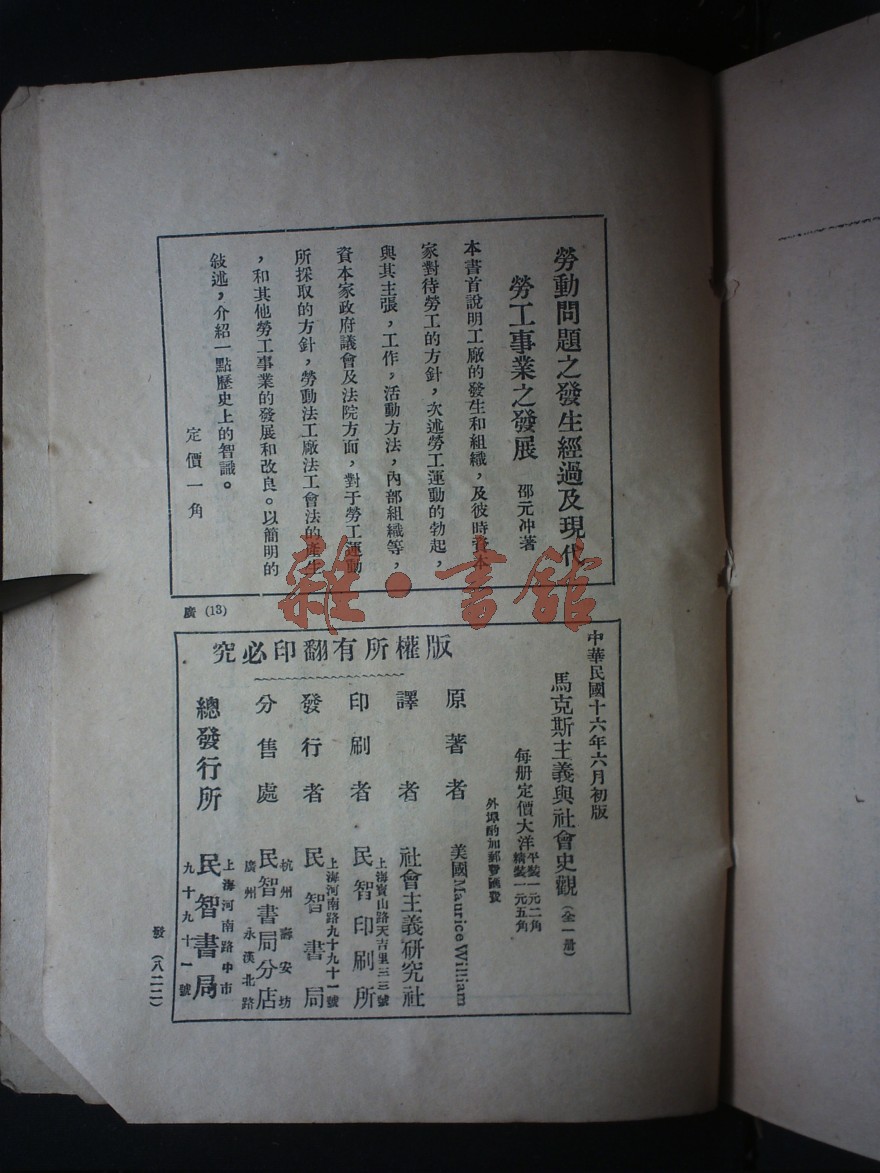 勞動問題之發生經過及現代
勞工事業之發展　邵元冲著
本書首說明工廠的發生和組織，及彼時資本
家對待勞工的方針，次述勞工運動的勃起，
與其主張，工作，活動方法，內部組織等，
資本家政府議會及法院方面，對于勞工運動
所採取的方針，勞動法工廠法工會法的產生
，和其他勞工事業的發展和改良。以簡明的
敍述，介紹一點歷史上的智識。
定價一角
廣 (13)
雜·書館
中華民國十六年六月初版
馬克斯主義與社會史觀（全一册）
每册定價大洋平裝一元二角精裝一元五角
外埠酌加郵費匯費
原著者　美國Maurice William
譯者　社會主義研究社
印刷者　上海寶山路天吉里三三號　民智印刷所
發行者　上海河南路九十九十一號　民智書局
分售處　杭州壽安坊　廣州永漢北路　民智書局分店
總發行所　上海河南路中市　九十九十一號　民智書局
版權所有翻印必究
發（八二二）